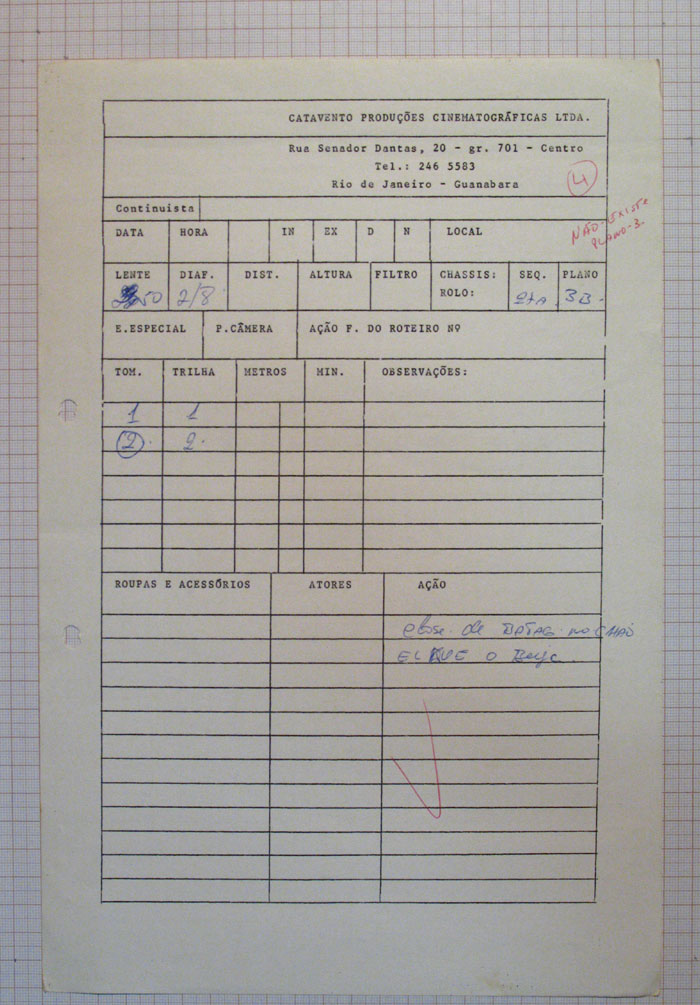 CATAVENTO PRODUÇÕES CINEMATOGRÁFICAS LTDA.
Rua Senador Dantas, 20 - gr. 701 - Centro
Tel.: 246 5583
Rio de Janeiro - Guanabara
4
Continuista
NÃO-EXISTE
PLANO-3.
DATA HORA IN EX D N LOCAL
LENTE DIAF. DIST. ALTURA FILTRO CHASSIS: SEQ. PLANO
ROLO:
50 2/8 27A 3B.
E.ESPECIAL P.CÂMERA AÇÃO F. DO ROTEIRO Nº
TOM. TRILHA METROS MIN. OBSERVAÇÕES:
1 1
2. 2.
ROUPAS E ACESSÓRIOS ATORES AÇÃO
close de no CHÃO
O